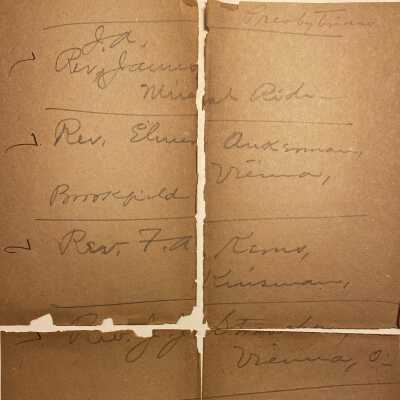 Presbyterians
J. A.
Rev. James
Mineral Ride
Rev. Elmer Ankerman,
Vienna,
Brookfield
Rev. F. A. Kerns,
Kinsman,
Rev.
Vienna, O.